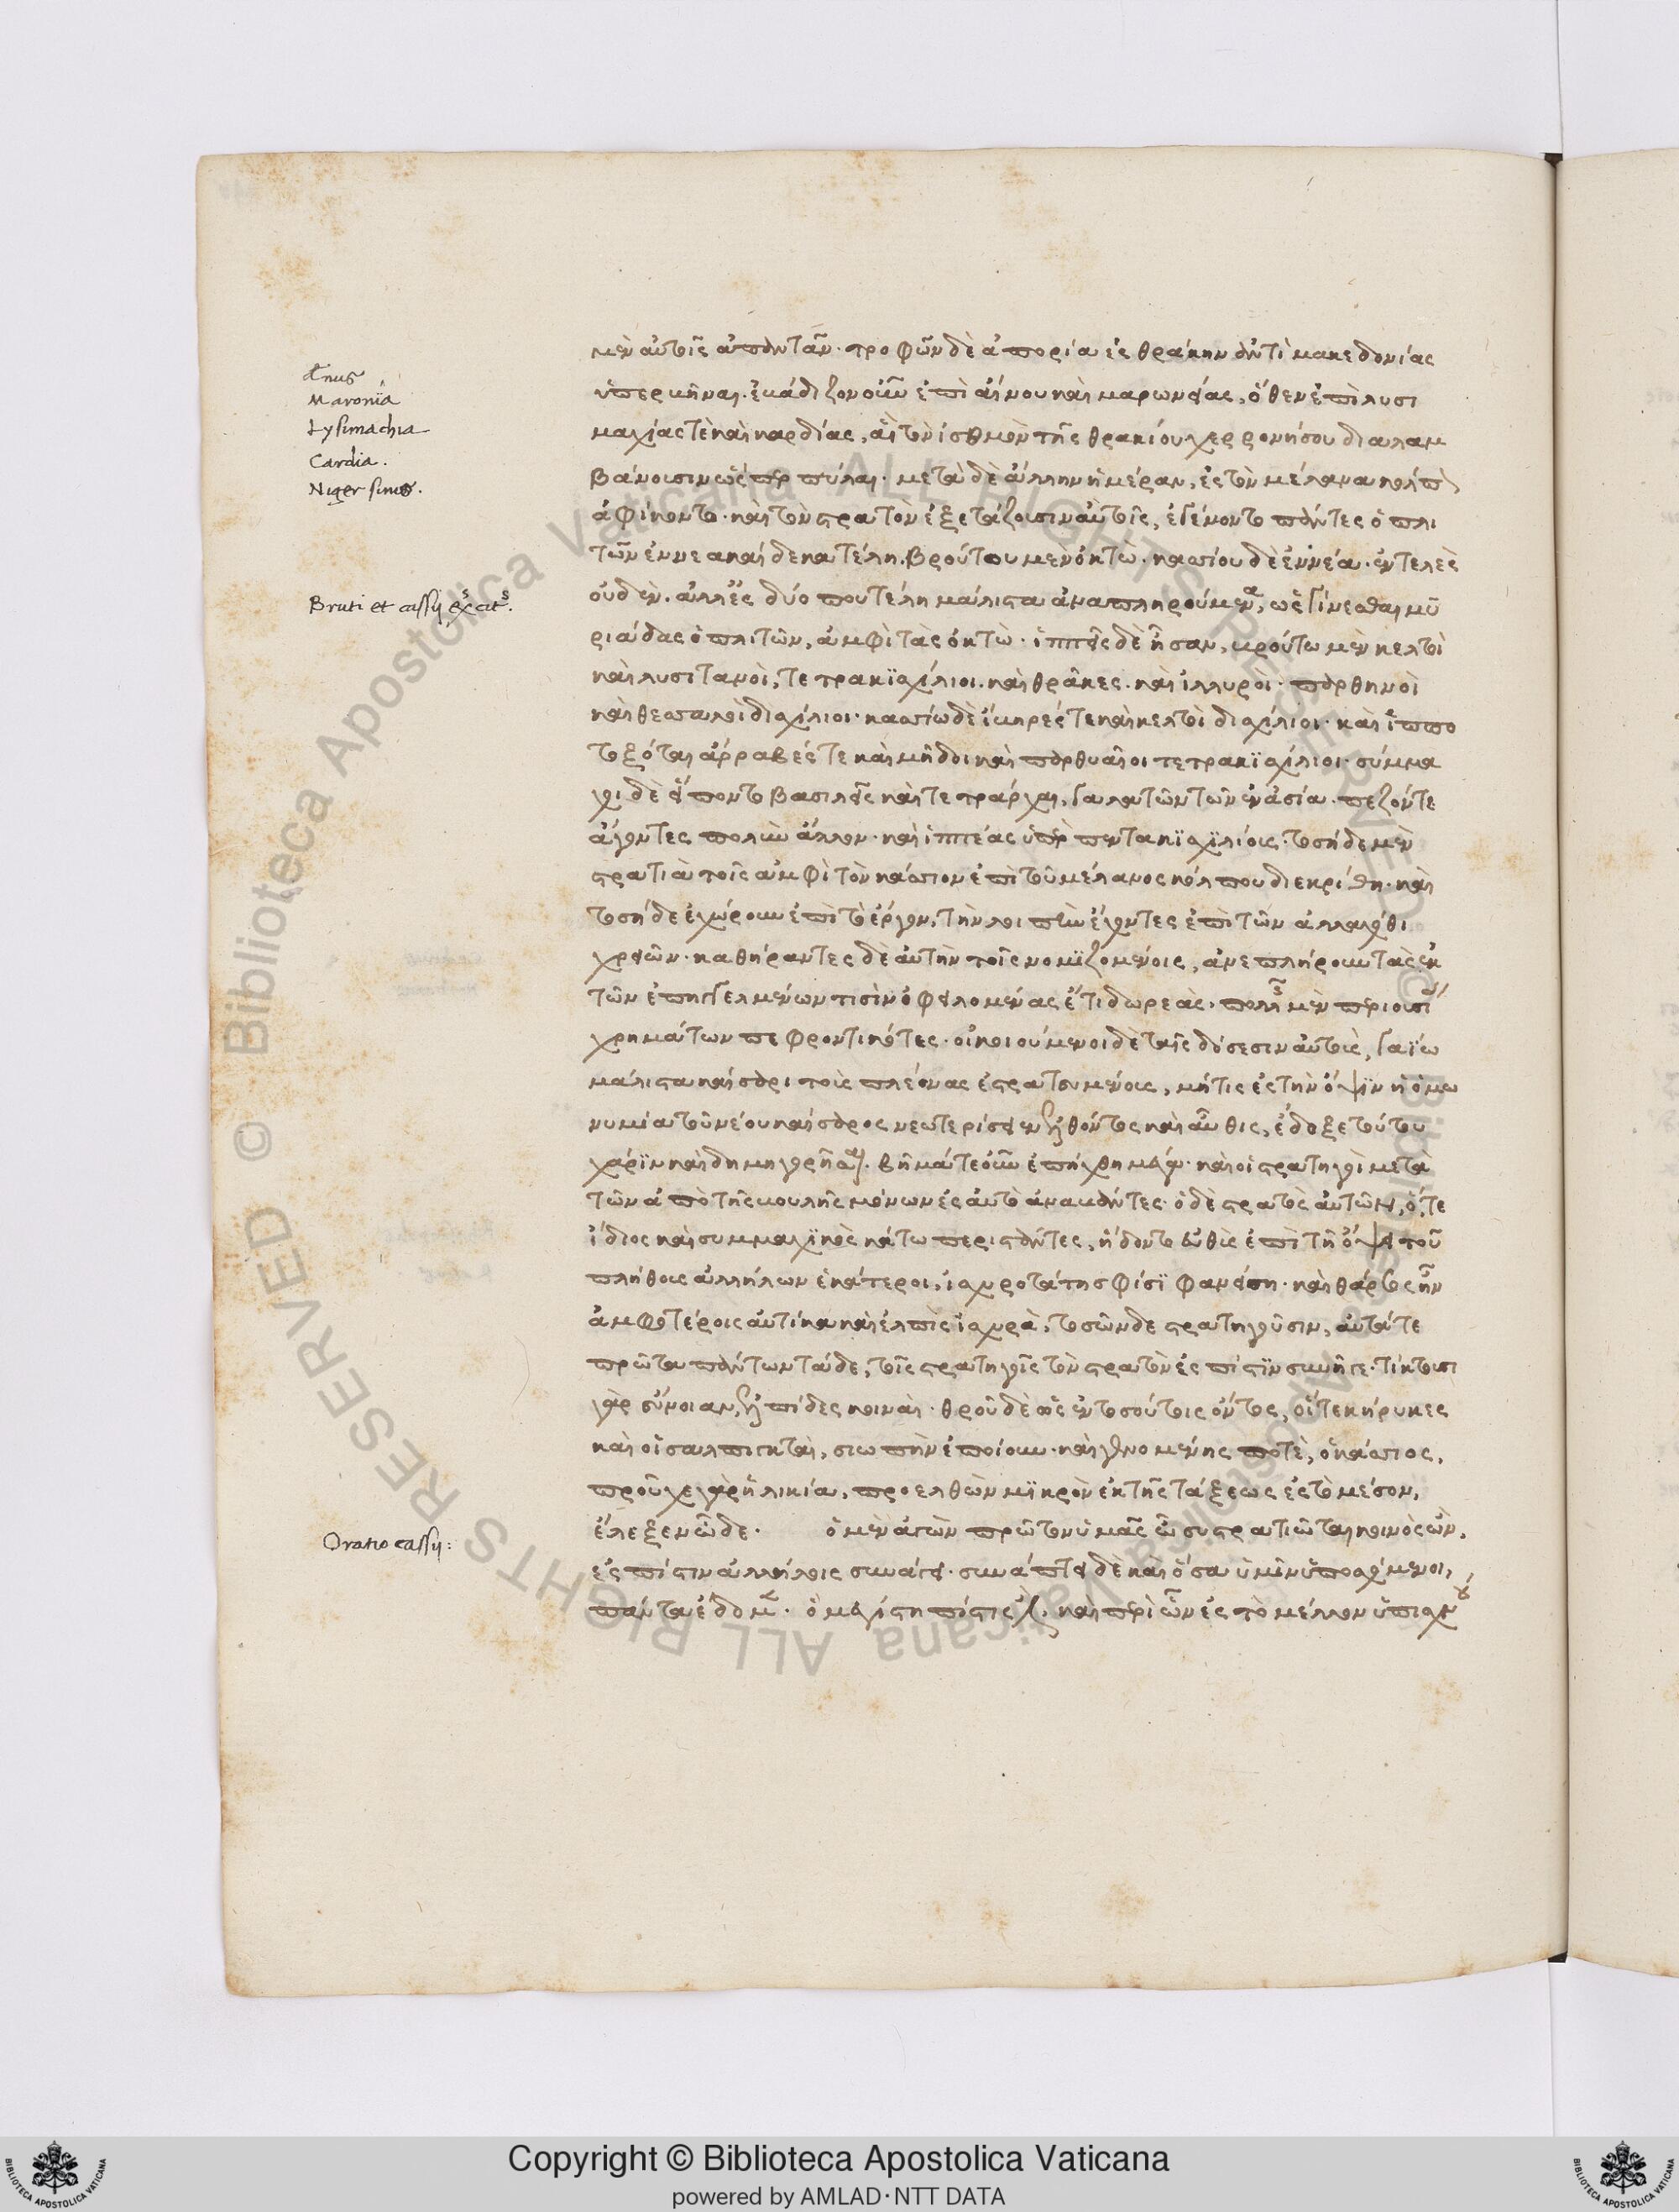 Ænus
Maronia
Lysimachia
Cardia.
Niger sinus.
Bruti et cassij exercitus.
Oratio cassij:
μὲν αὐτοῖς ἀπαντᾶν· τροφῶν δὲ ἀπορία ἐς θράκην ἀντὶ μακεδονίας
ὑπερβῆναι. ἐβάδιζον οὖν ἐπὶ αἴνου καὶ μαρωνείας, ὅθεν ἐπὶ λυσι
μαχίας τὲ καὶ καρδίας, αἳ τὸν ἰσθμὸν τῆς θρακίου χερρονήσου διαλαμ
βάνουσιν ὥσπερ πύλαι· μετὰ δὲ ἄλλην ἡμέραν, ἐς τὸν μέλανα κόλπ
ἀφίκοντο· καὶ τὸν στρατὸν ἐξετάζουσιν αὐτοῖς, ἐγένοντο πάντες ὁπλι
τῶν ἐννεακαίδεκα τέλη. βρούτου μὲν ὀκτὼ· κασσίου δὲ ἐννέα· ἐντελὲς
οὐδὲν. ἀλλ' ἐς δύο που τέλη μάλιστα ἀναπληρούμενα, ὡς γίνεσθαι μυ
ριάδας ὁπλιτῶν, ἀμφὶ τὰς ὀκτὼ· ἱππεῖς δὲ ἦσαν, βρούτω μὲν κελτοὶ
καὶ λυσιτανοὶ, τετρακισχίλιοι. καὶ θρᾶκες. καὶ ἰλλυροὶ· παρθηνοὶ
καὶ θεσσαλοὶ δισχίλιοι· κασσίω δὲ ἴβηρές τε καὶ κελτοὶ δισχίλιοι· καὶ ἱππο
τοξόται ἄρραβές τε καὶ μῆδοι καὶ παρθυαῖοι τετρακισχίλιοι· σύμμα
χοι δὲ εἵποντο βασιλεῖς καὶ τετράρχαι, γαλατῶν τῶν ἐν ἀσία· πεζόν τε
ἄγοντες πολὺν ἄλλον· καὶ ἱππέας ὑπὲρ πεντακισχιλίους· τοσήδε μὲν
στρατιὰ τοῖς ἀμφὶ τὸν κάσσιον ἐπὶ τοῦ μέλανος κόλπου διεκρίθη· καὶ
τοσῆδε ἐχώρουν ἐπὶ τὸ ἔργον, τὴν λοιπὴν ἔχοντες ἐπὶ τῶν ἀλλαχόθι
χρειῶν· καθήραντες δὲ αὐτὴν τοῖς νομιζομένοις, ἀνεπλήρουν τὰς ἐκ
τῶν ἐπηγγελμένων τισὶν ὀφειλομένας ἔτι δωρεὰς· πολλῆς μὲν περιουσί
χρημάτων πεφροντικότες· οἰκειούμενοι δὲ ταῖς δόσεσιν αὐτοὺς, γαΐω
μάλιστα καίσαρι τοὺς πλέονας ἐστρατευμένους, μή τις ἐς τὴν ὄψιν ἢ ὁμω
νυμίαν τοῦ νέου καίσαρος νεωτερίσειεν ἐλθόντος καὶ αὖθις, ἔδοξε τούτου
χάριν καὶ δημηγορῆσαι. βῆμά τε οὖν ἐπήχθη μέγα· καὶ οἱ στρατηγοὶ μετὰ
τῶν ἀπὸ τῆς βουλῆς μόνων ἐς αὐτὸ ἀναβάντες· ὁ δὲ στρατὸς αὐτῶν, ὅ,τε
ἴδιος καὶ συμμαχικὸς κάτω περιστάντες, ἥδοντο εὐθὺς ἐπὶ τῆ ὄψει τοῦ
πλήθους ἀλλήλων ἑκάτεροι, ἰσχυροτάτη σφίσι φανείση· καὶ θάρσος ἦν
ἀμφοτέροις αὐτίκα καὶ ἐλπὶς ἰσχυρὰ, τοσῶνδε στρατηγοῦσιν, αὐτά τε
πρῶτα πάντων τάδε, τοῖς στρατηγοῖς τὸν στρατὸν ἐς πίστιν συνῆγε· τίκτουσι
γὰρ εὔνοιαν, ἐλπίδες κοιναὶ· θροῦ δὲ ὡς ἐν τοσούτοις ὄντος, οἵ τε κήρυκες
καὶ οἱ σαλπιγκταὶ, σιωπὴν ἐποίουν· καὶ γενομένης ποτὲ, ὁ κάσσιος,
προῦχε γὰρ ἡλικία, προελθὼν μικρὸν ἐκ τῆς τάξεως ἐς τὸ μέσον,
ἔλεξεν ὧδε· ὁ μὲν ἀγὼν πρῶτον ὑμᾶς ὦ συστρατιῶται κοινὸς ὢν,
ἐς πίστιν ἀλλήλοις συνάγει· συνάπτει δὲ καὶ ὅσα ὑμῖν ὑποσχόμενοι,
πάντα ἔδομεν· ὃ μεγίστη πίστις ἐστὶ, καὶ περὶ ὧν ἐς τὸ μέλλον ὑπεσχ
Copyright © Biblioteca Apostolica Vaticana
powered by AMLAD·NTT DATA